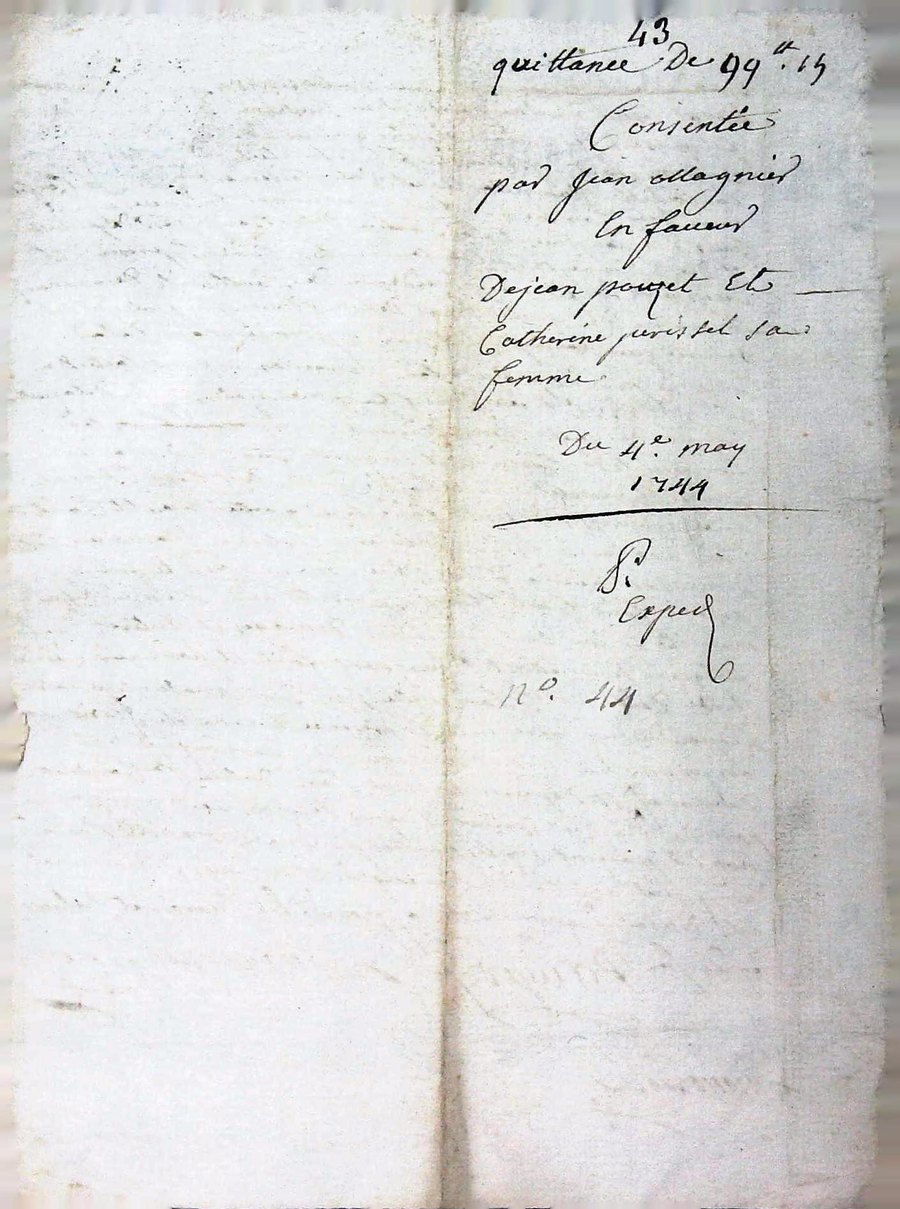 43
quittance De 99tt. 15
Consentée
par Jean Magnier
En faveur
De jean pouzet Et
Catherine perissel sa
femme
Du 4e. may
1744
Exped
no. 44